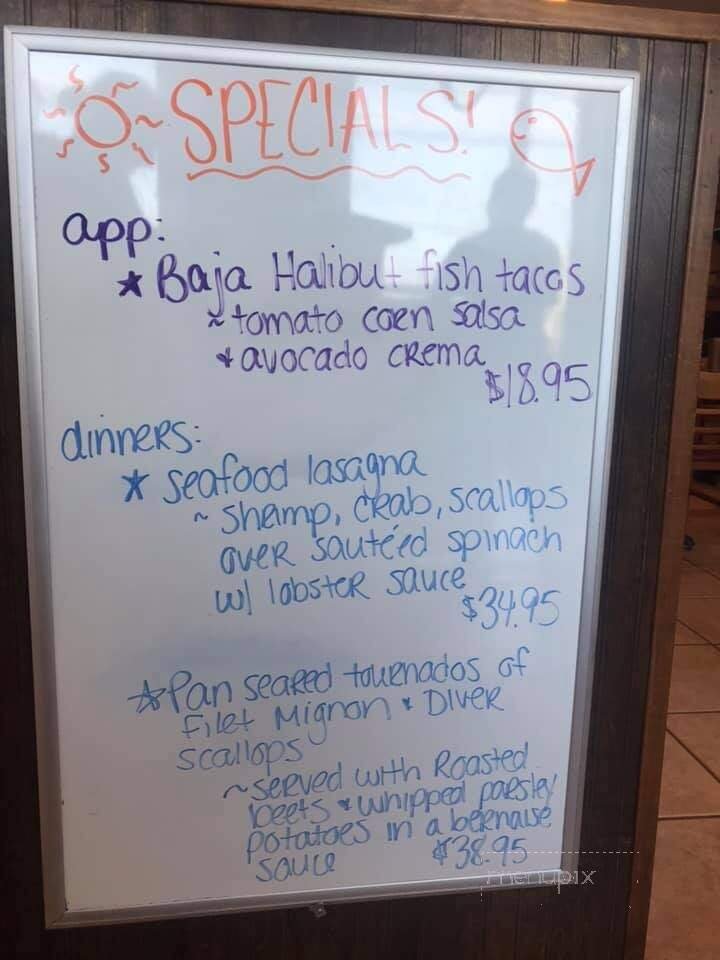 SPECIALS!
app:
* Baja Halibut fish tacos
~ tomato corn salsa
+ avocado crema
$18.95
dinners:
* seafood lasagna
~ shrimp, crab, scallops
over sauteéd spinach
w/ lobster sauce
$34.95
* Pan seared tournados of
Filet Mignon + Diver
scallops
~ served with Roasted
beets + whipped parsley
potatoes in a bernaise
sauce
$38.95
menupix